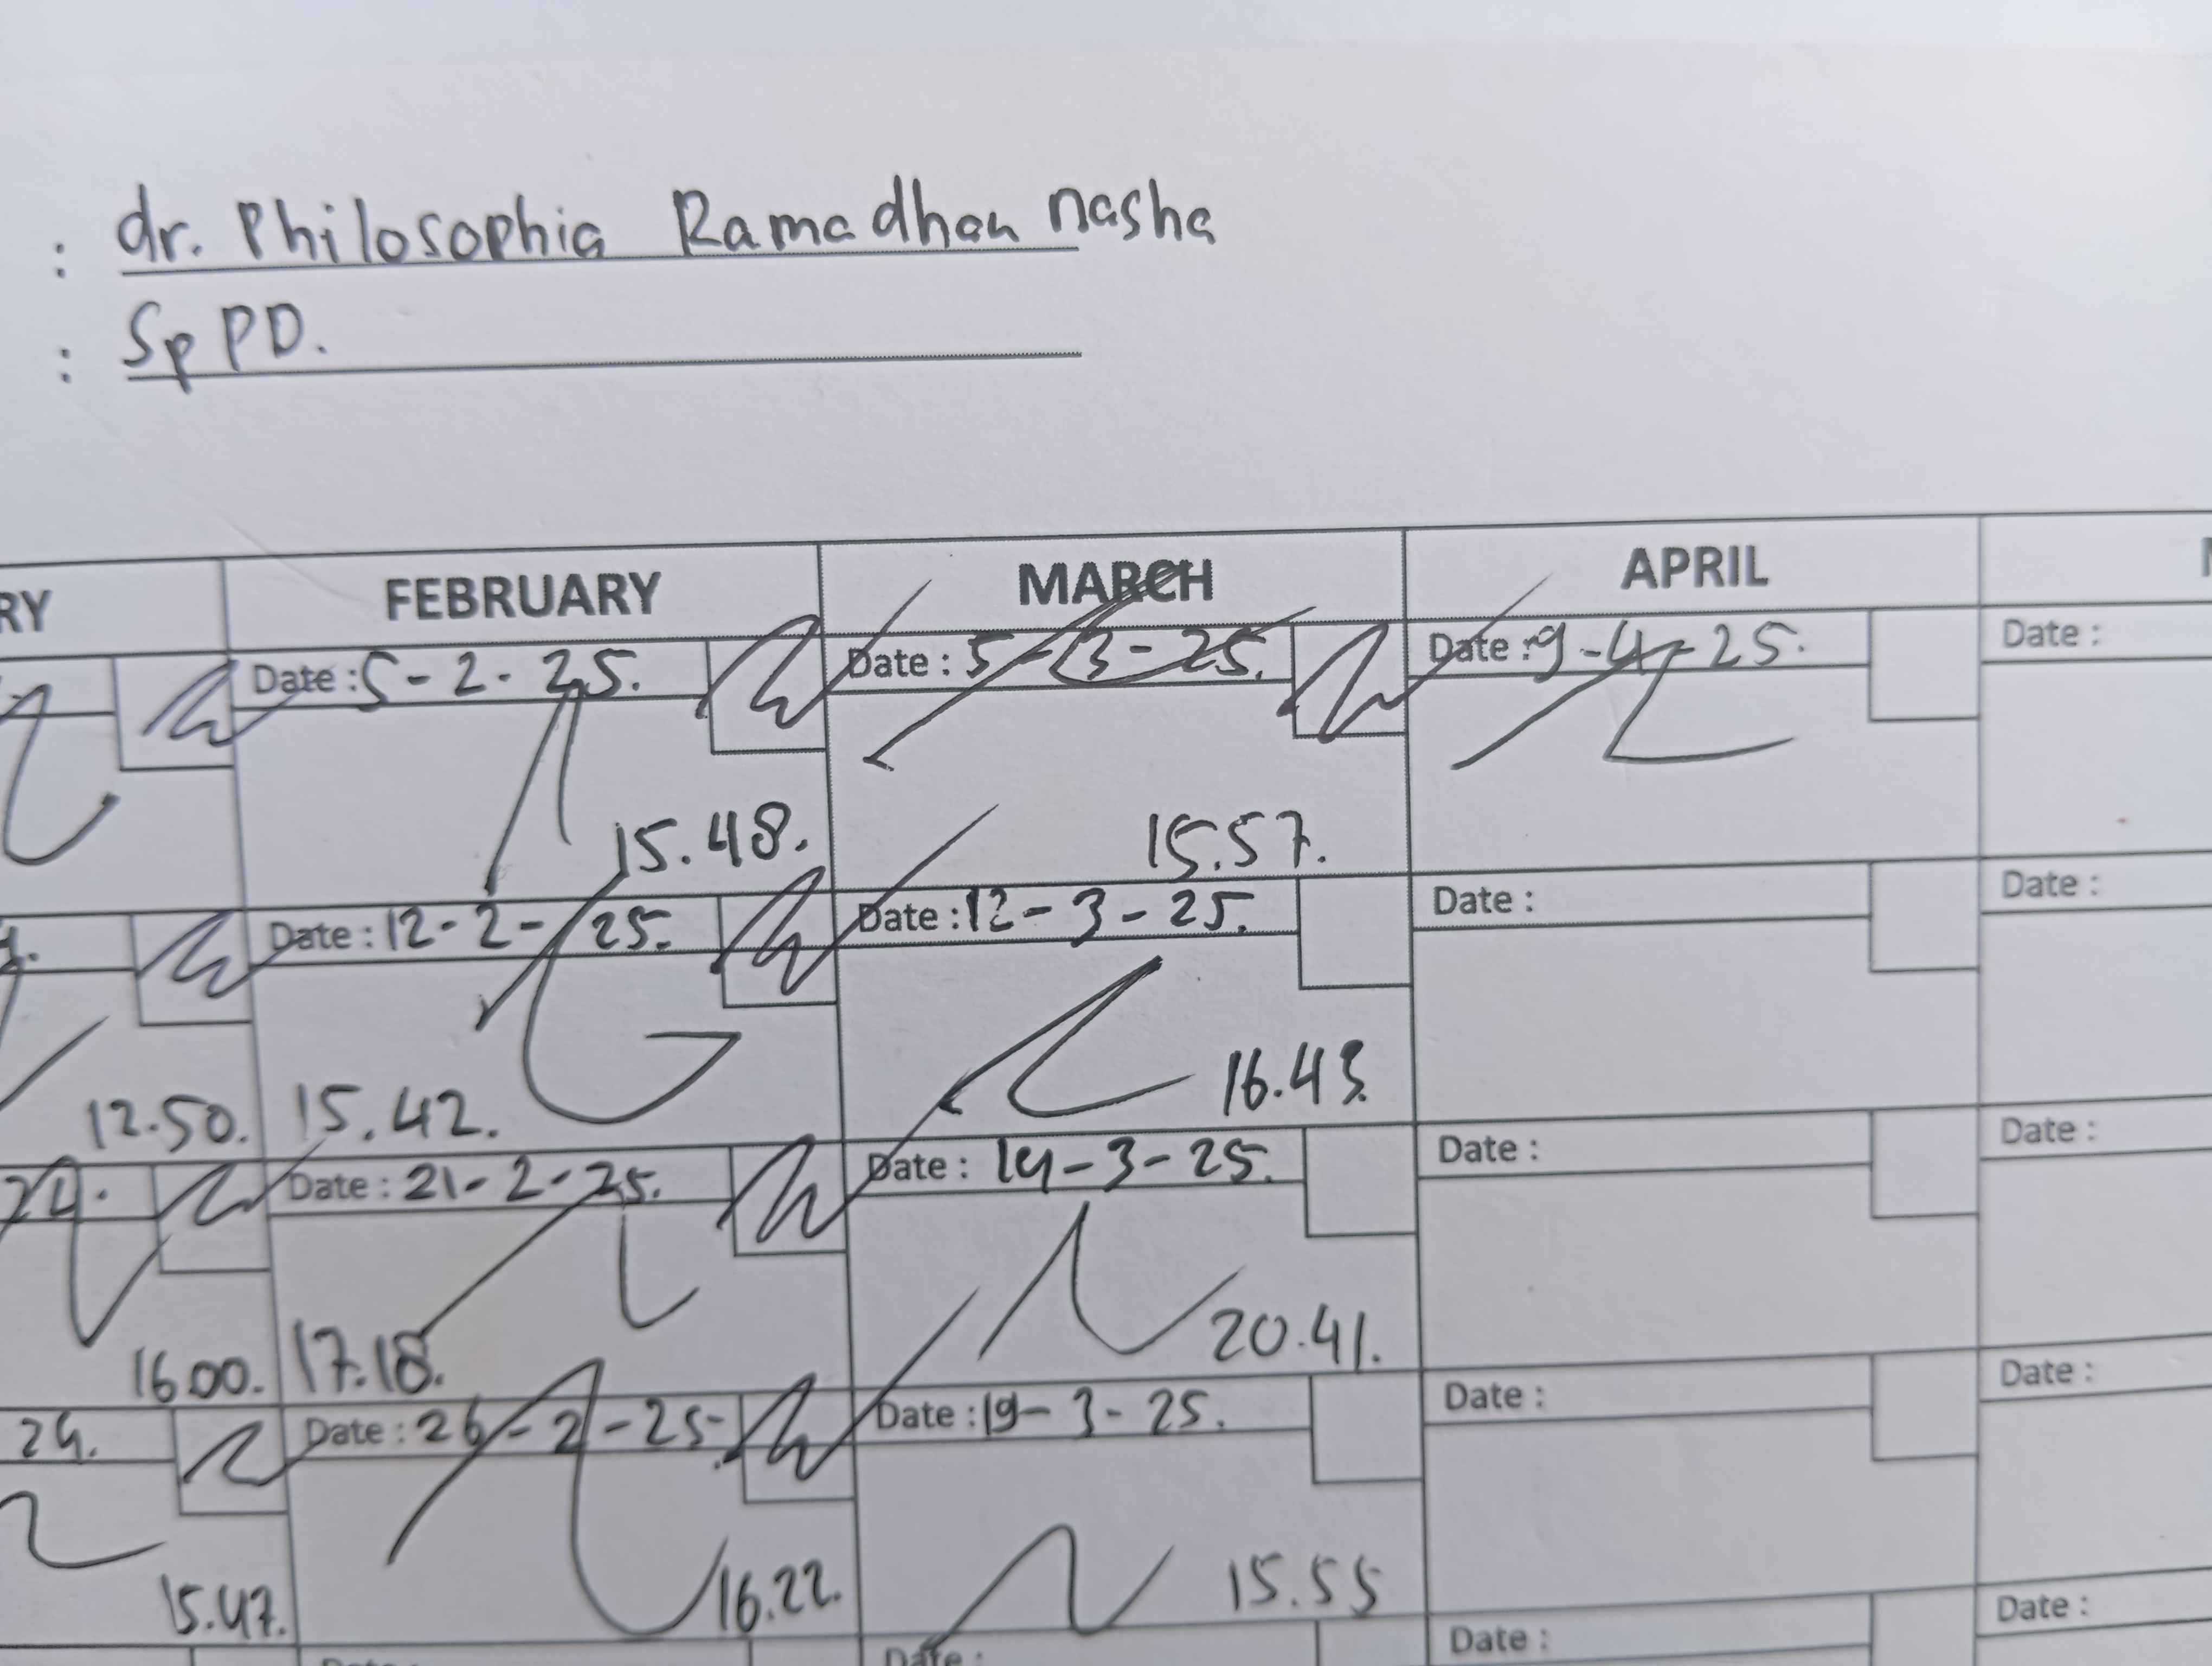 : dr. Philosophia Ramadhan nasha
: Sp PD.
RY FEBRUARY MARCH APRIL
Date : 5 - 2 - 25. Date : 5 - 3 - 25. Date : 9 - 4 - 25. Date :
15.48. 15.57.
Date : 12 - 2 - 25. Date : 12 - 3 - 25. Date : Date :
12.50. 15.42. 16.43.
Date : 21 - 2 - 25. Date : 14 - 3 - 25. Date : Date :
16.00. 17.18. 20.41.
24. Date : 26 - 2 - 25. Date : 19 - 3 - 25. Date : Date :
15.47. 16.22. 15.55
Date : Date : Date :